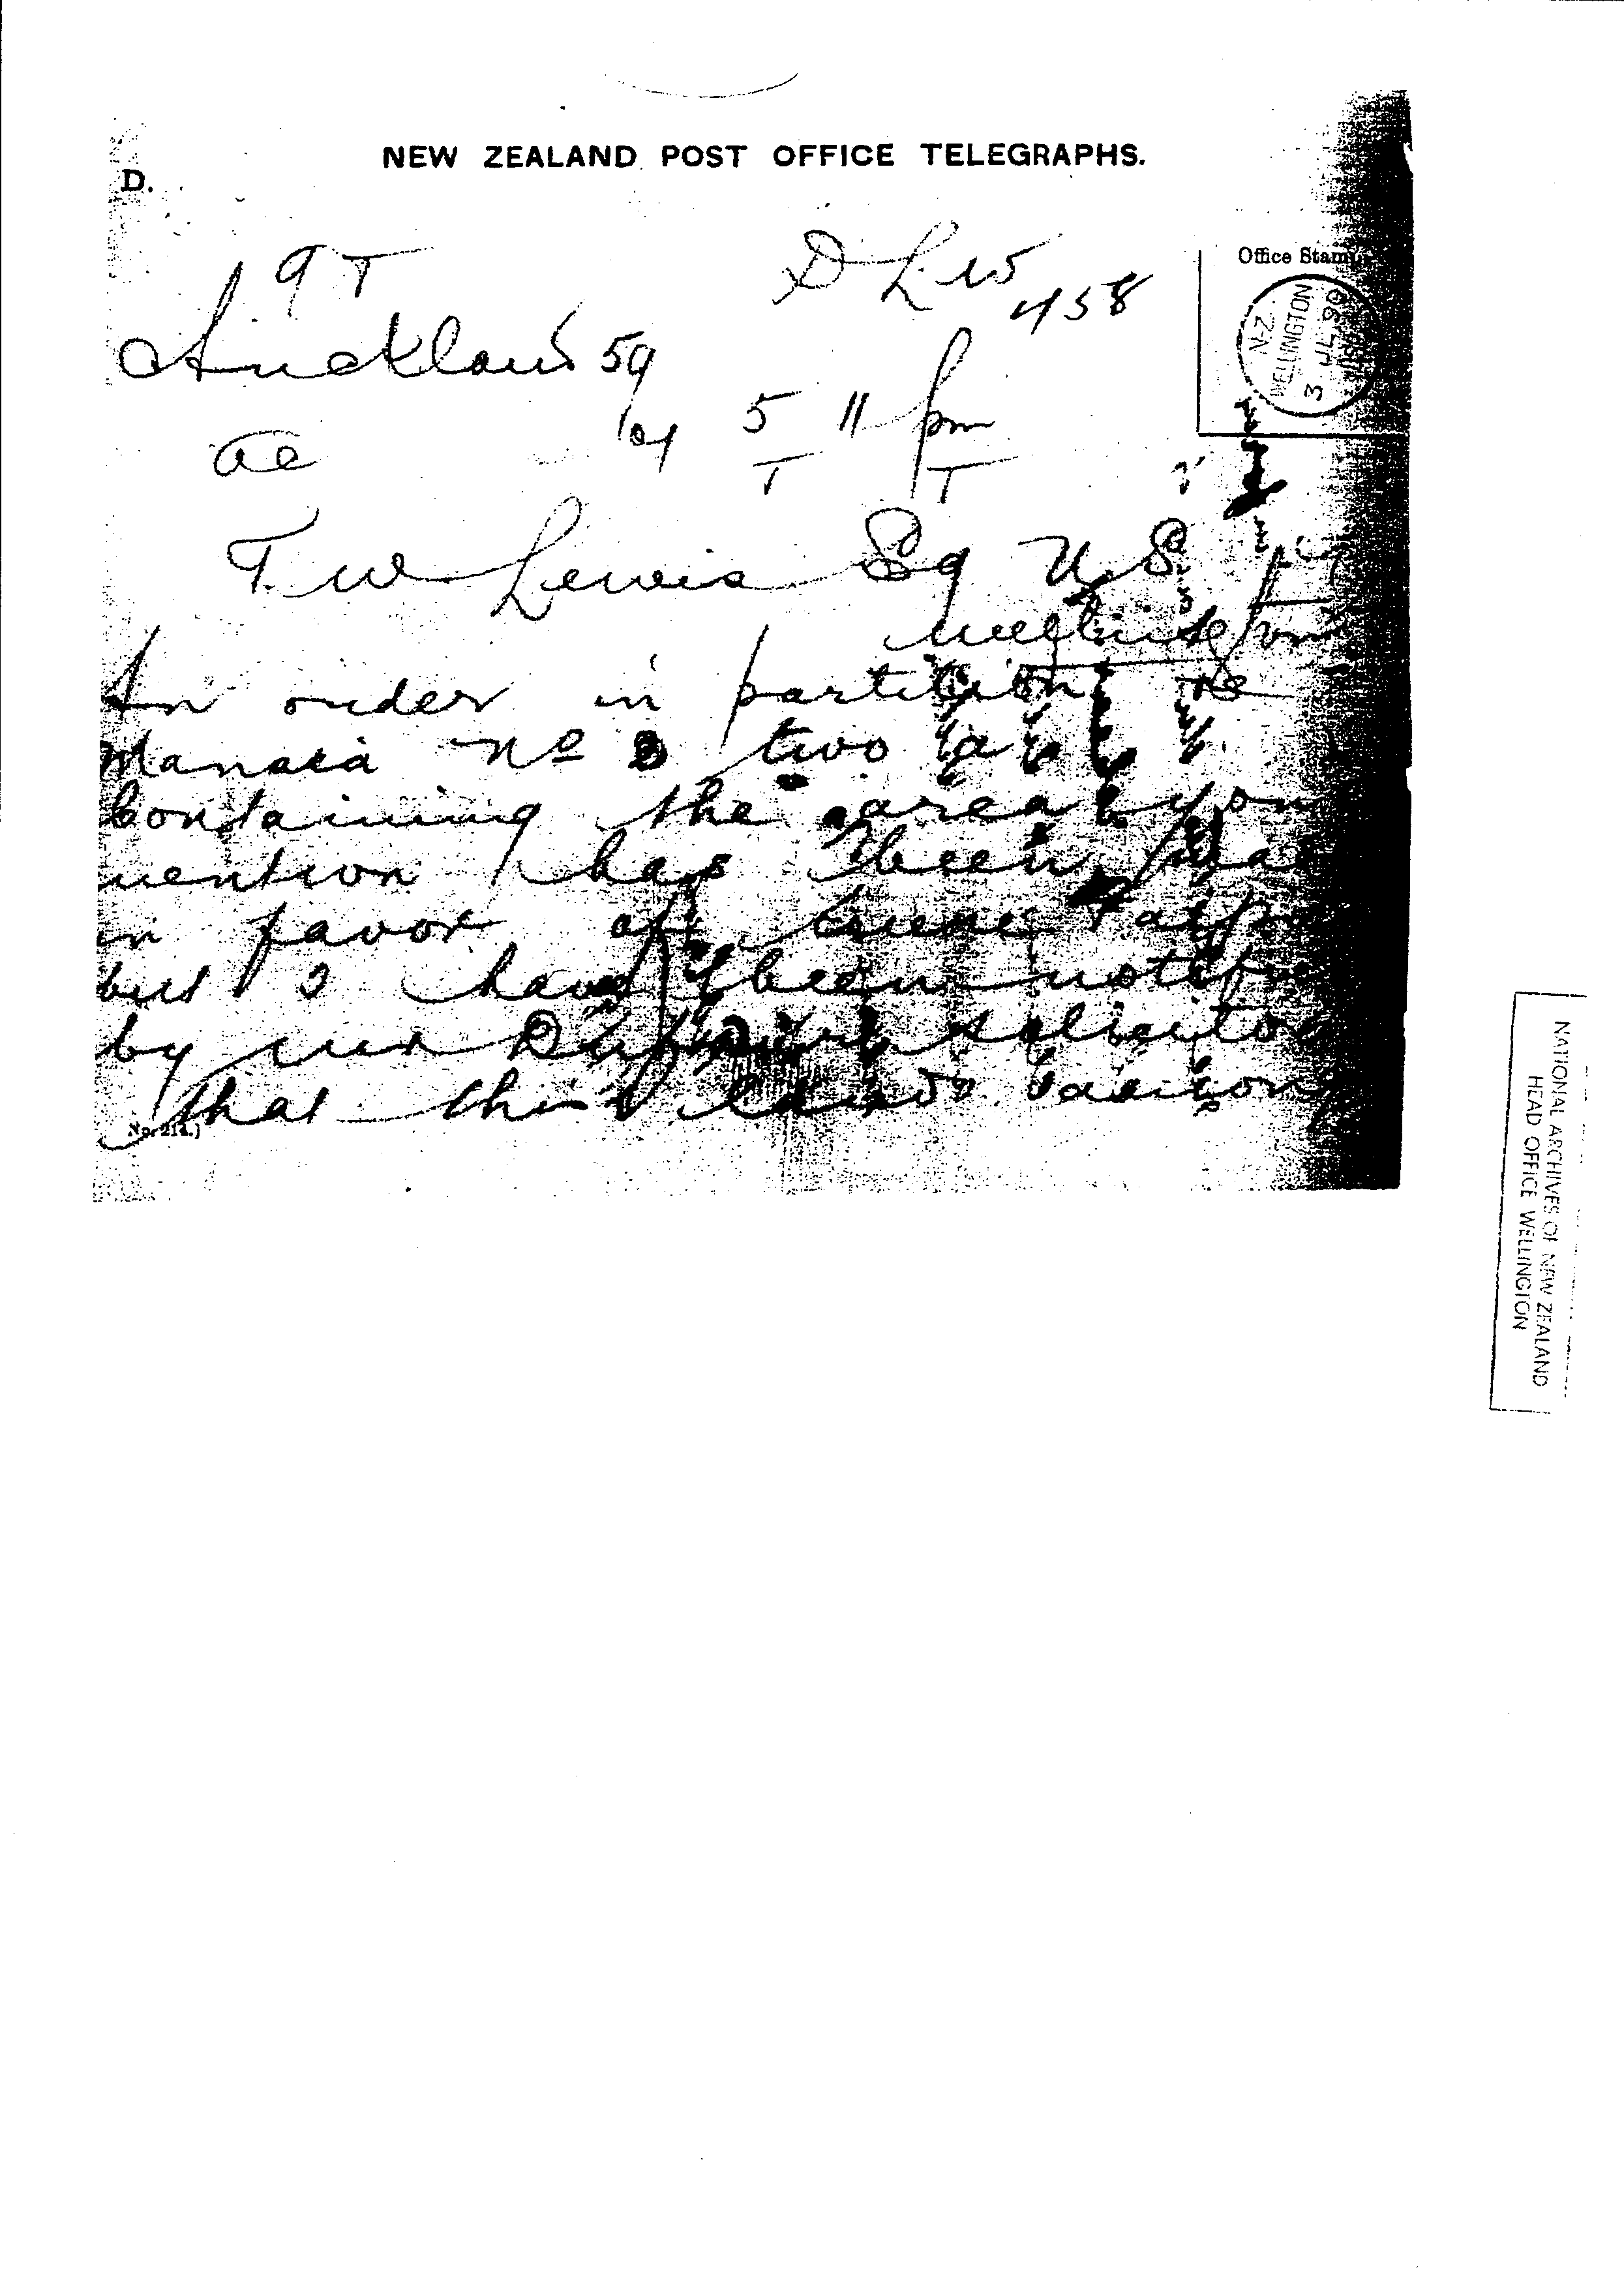 NEW ZEALAND POST OFFICE TELEGRAPHS.
D.
9 T
D L W
458
Office Stamp
N.Z.
WELLINGTON
3 JL 90
Auckland 59
5 11 pm
T T
T. W Lewis Esq U. S.
Wellington
An order in partition re
Manaia No 2 two a
containing the area you
mention has been
in favor of
but I have been
by mr solicitor
that this land
No. 214.]
NATIONAL ARCHIVES OF NEW ZEALAND
HEAD OFFICE WELLINGTON